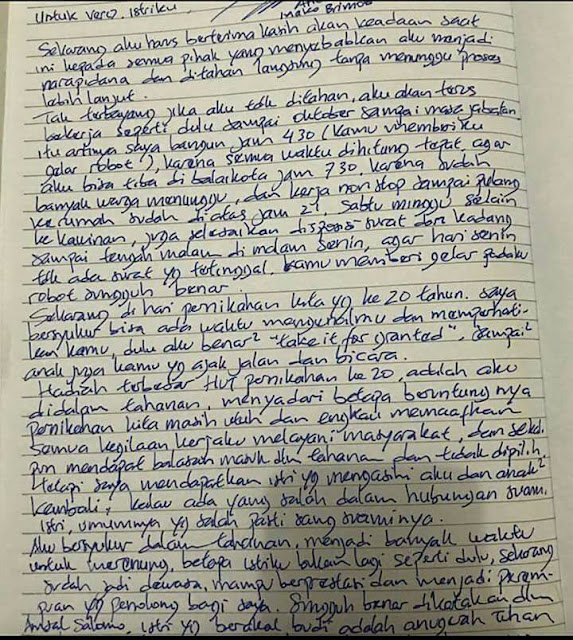 Untuk Vero. Istriku
Mako Brimob
Sekarang aku harus berterima kasih akan keadaan saat
ini kepada semua pihak yang menyebabkan aku menjadi
narapidana dan ditahan langsung tanpa menunggu proses
lebih lanjut.
Tak terbayang jika aku tdk ditahan, aku akan terus
bekerja seperti dulu sampai oktober sampai masa jabatan.
itu artinya saya bangun jam 430 (kamu memberiku
gelar robot), karena semua waktu dihitung tepat, agar
aku bisa tiba di balaikota jam 730, karena sudah
banyak warga menunggu, dan kerja non stop sampai pulang
ke rumah sudah diatas jam 21, sabtu minggu selain
ke kawinan, juga selesaikan disposisi surat dan kadang
sampai tengah malam di malam senin, agar hari senin
tdk ada surat yg tertinggal. kamu memberi gelar padaku
robot sungguh benar.
Sekarang di hari pernikahan kita yg ke 20 tahun. saya
bersyukur bisa ada waktu mengenalmu dan memperhati-
kan kamu, dulu aku benar² "take it for granted", sampai²
anak juga kamu yg ajak jalan dan bicara.
Hadiah terbesar HUT pernikahan ke 20, adalah aku
didalam tahanan, menyadari betapa beruntung nya
pernikahan kita masih utuh dan engkau memaafkan
semua kegilaan kerjaku melayani masyarakat, dan seka.
pun mendapat balasan masuk dlm tahanan dan tidak dipilih.
tetapi saya mendapatkan istri yg mengasihi aku dan anak²
kembali; kalau ada yang salah dalam hubungan suami.
istri, umumnya yg salah pasti sang suaminya.
Aku bersyukur dalam tahanan, menjadi banyak waktu
untuk merenung, betapa istriku bukan lagi seperti dulu, sekarang
sudah jadi dewasa, mampu berprestasi dan menjadi perem-
puan yg penolong bagi saya. Sungguh benar dikatakan dlm
Amsal Salomo, istri yg berakal budi adalah anugerah Tuhan